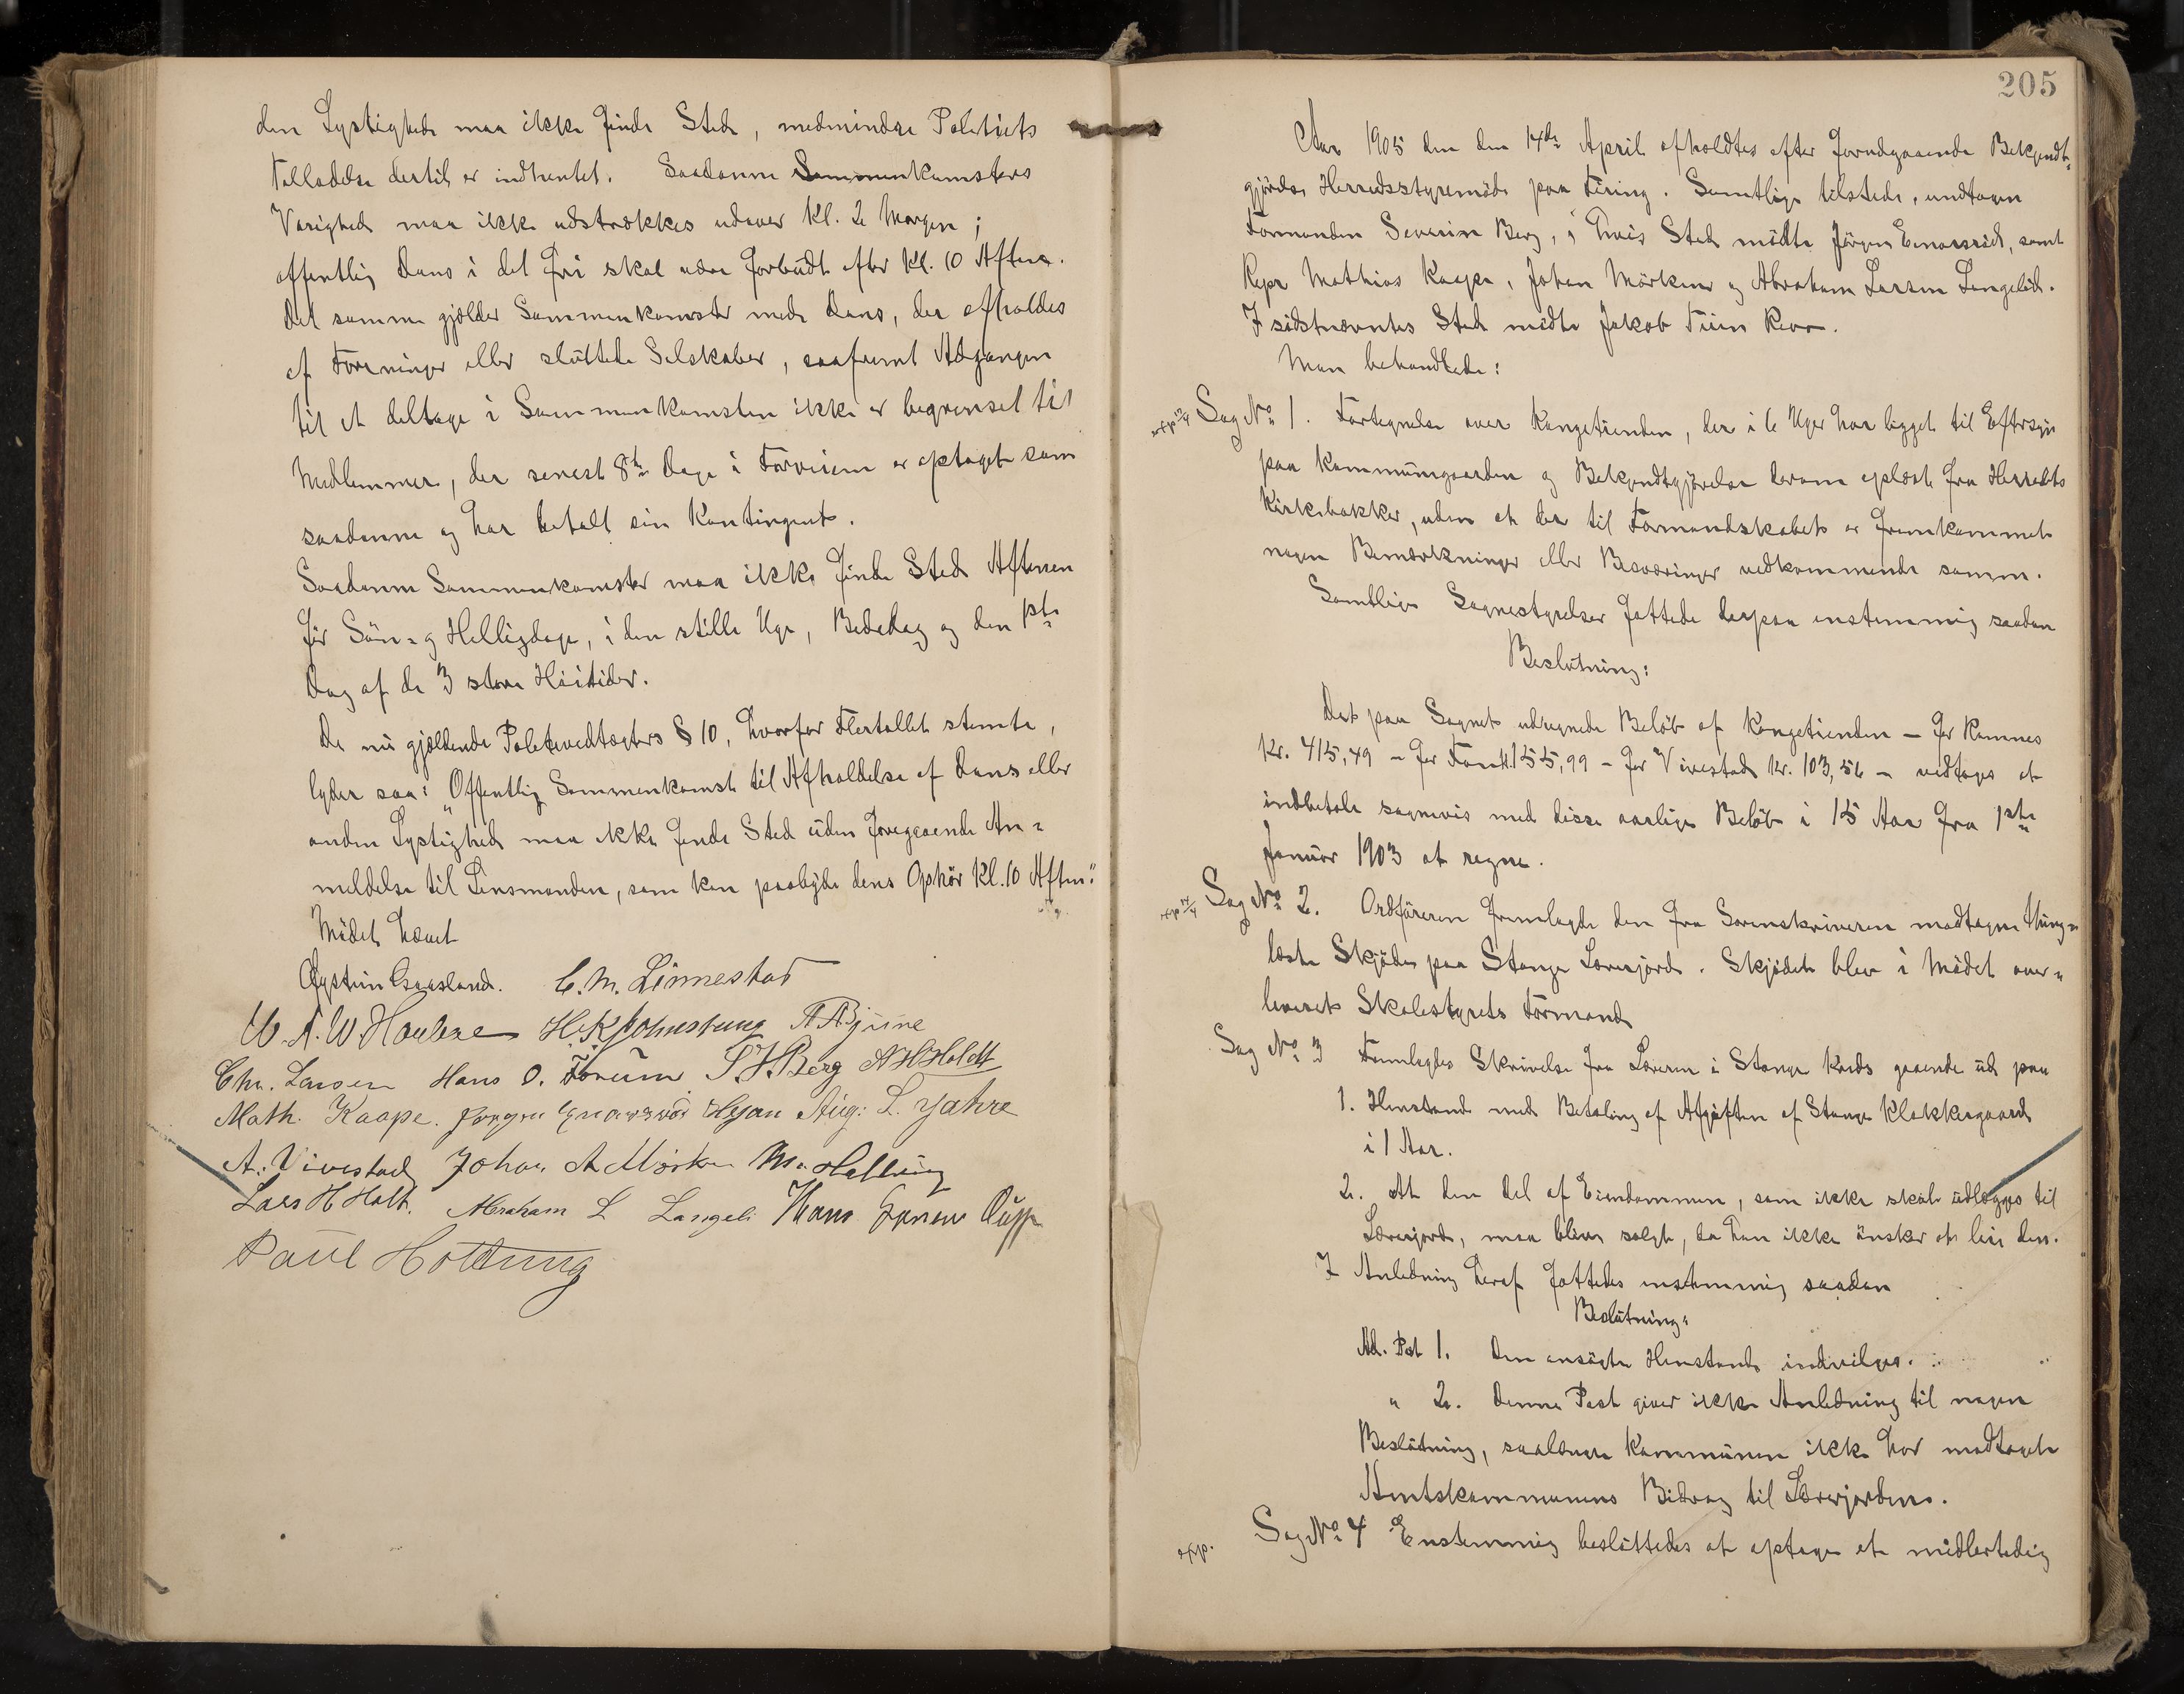 den Lystighed maa ikke finde Sted, medmindre Politiets
Tilladelse dertil er indhentet. Saadanne Sammenkomsters
Varighed maa ikke udstrækkes udover Kl. 2 Morgen;
offentlig Dans i det fri skal være forbudt efter Kl. 10 Aften.
Det samme gjælder Sammenkomster med Dans, der afholdes
af Foreninger eller sluttede Selskaber, saafremt Adgangen
til at deltage i Sammenkomsten ikke er begrænset til
Medlemmer, der senest 8te Dage i Forveien er optaget som
saadanne og har betalt sin Kontingent.
Saadanne Sammenkomster maa ikke finde Sted Aftenen
før Søn- og Helligdage, i den stille Uge, Bededag og den 1ste
Dag af de 3 store Høitider.
De nu gjældende Politivedtægters § 10, hvorfor Flertallet stemte,
lyder saa: „Offentlig Sammenkomst til Afholdelse af Dans eller
anden Lystighed maa ikke finde Sted uden foregaaende An-
meldelse til Lensmanden, som kan paabyde dens Ophør Kl. 10 Aften."
Mødet hævet
Øystein Graasland. C. M. Linnestad
H. K. Johnsrung A. A. Bjune
Chr. Larsen Hans O. Forum S. H. Berg A H Holdt
Math. Kaape. Jørgen Enarsrød Aug: L. Jahre
A. Vivestad Johan A Mørken M. Hallting
Lars H Holt. Abraham L Langelø Hans
Paul Holtung
205
Aar 1905 den den 14de April afholdtes efter forudgaaende Bekjendt-
gjørelse Herredsstyremøde paa Firing. Samtlige tilstede, undtagen
Formanden Severin Berg, i hvis Sted mødte Jørgen Enarsrød, samt
Repr Mathias Kaape, Johan Mørken og Abraham Larsen Langelød.
I sidstnævntes Sted mødte Jakob Tiin Revo.
Man behandlede:
Sag No 1. Fortegnelse over Kongetienden, der i 6 Uger har ligget til Eftersyn
paa Kommunegaarden og Bekjendtgjørelse derom oplæst fra Herredets
Kirkebakker, uden at der til Formandskabet er fremkommet
nogen Bemærkninger eller Besværinger vedkommende samme.
Samtlige Sognestyrelser fattede derpaa enstemmig saadan
Beslutning:
Det paa Sognet udregnede Beløb af Kongetienden – for Ramnes
Kr. 415,49 – for Fon Kr. 155,99 – for Vivestad Kr. 103,56 – vedtages at
indbetale sognevis med disse aarlige Beløb i 15 Aar fra 1ste
Januar 1903 at regne.
Sag No 2. Ordføreren fremlagde den fra Sorenskriveren modtagne thing-
læste Skjøde paa Stange Lærerjord. Skjødet blev i Mødet over-
leveret Skolestyrets Formand
Sag No 3 Fremlagdes Skrivelse fra Læreren i Stange Kreds gaaende ud paa
1. Henstand med Betaling af Afgiften af Stange Klokkergaard
i 1 Aar.
2. At den Del af Eiendommen, som ikke skal udlægges til
Lærerjord, maa blive solgt, da han ikke ønsker at leie den.
I Anledning heraf fattedes enstemmig saadan
Beslutning:
Ad. Post 1. Den ansøgte Henstand indvilges.
" 2. Denne Post giver ikke Anledning til nogen
Beslutning, saalænge Kommunen ikke har modtaget
Amtskommunens Bidrag til Lærerjorden.
exp. Sag No 4 Enstemmig besluttedes at optage et midlertidig